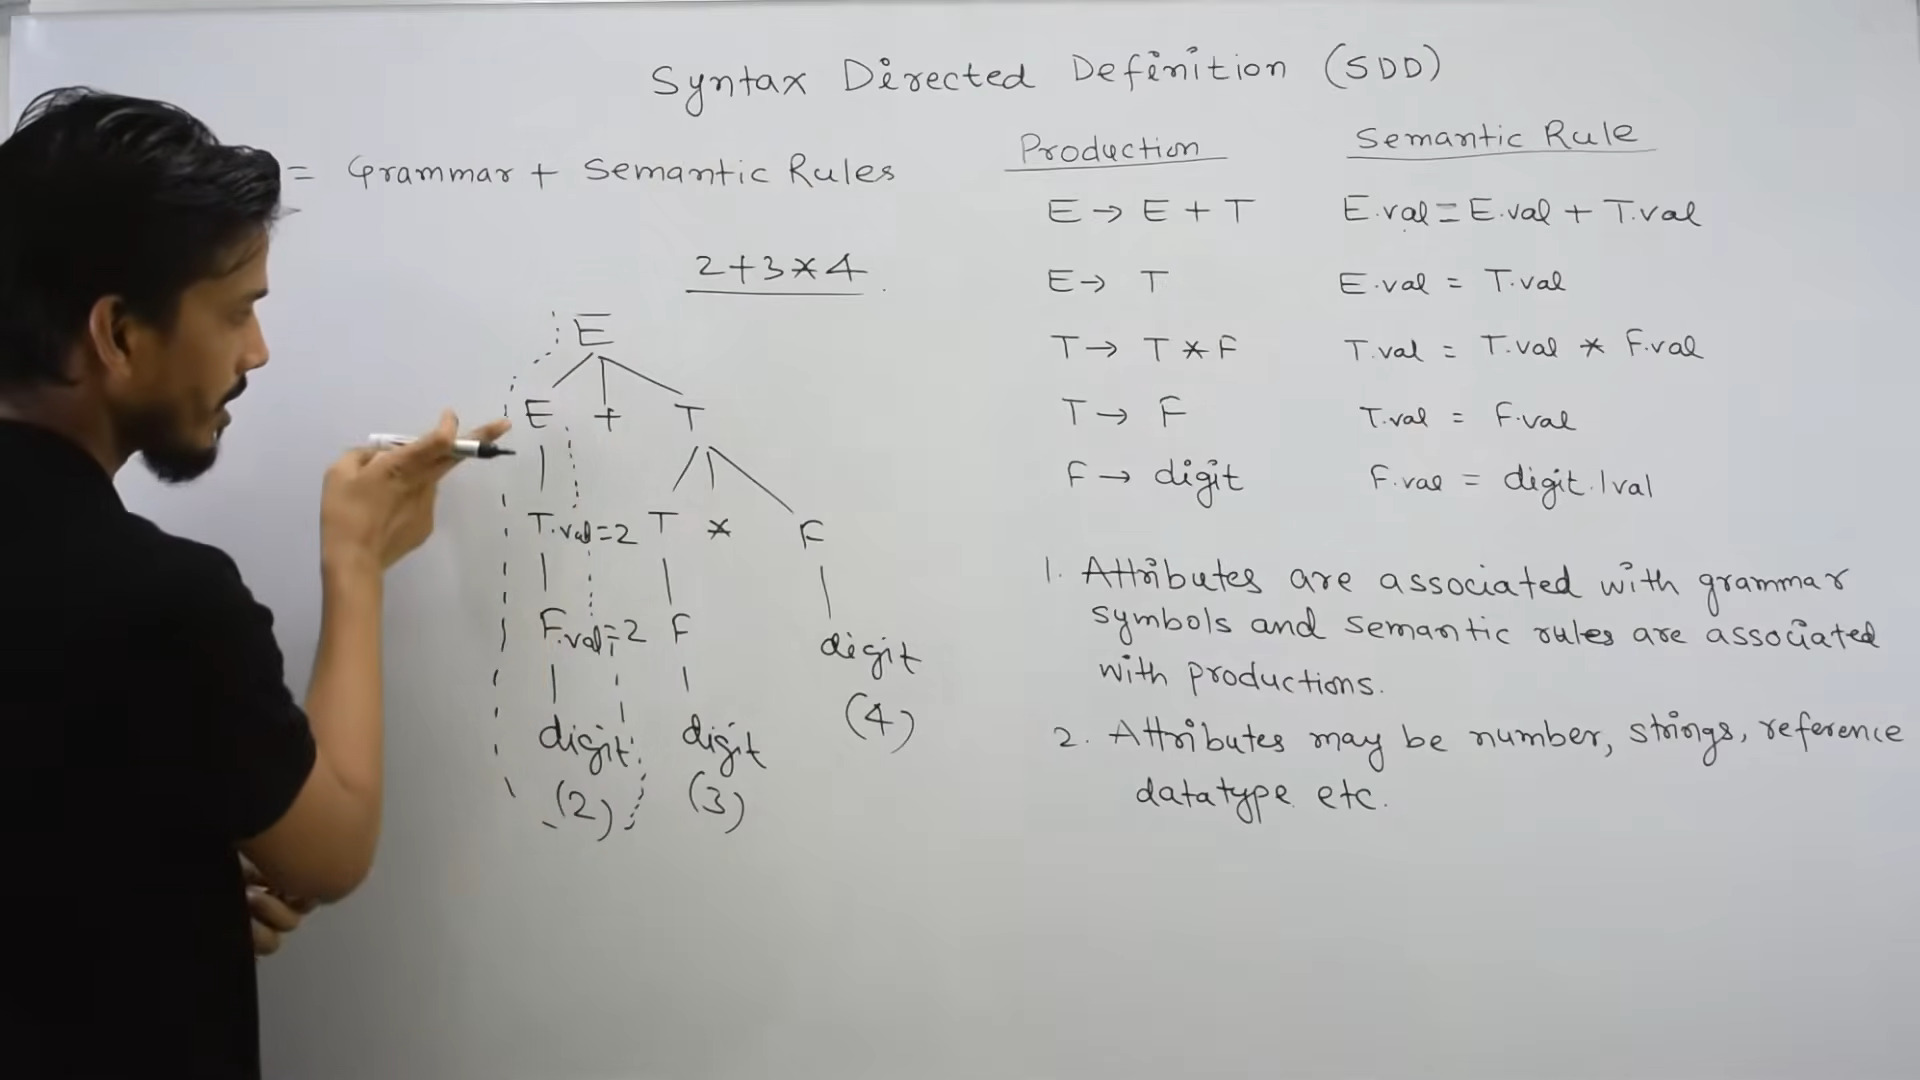 Syntax Directed Definition (SDD)
= Grammar + Semantic Rules
2+3*4
E
E + T
T.val=2 T * F
F.val=2 F digit
digit digit (4)
(2) (3)
Production Semantic Rule
E → E + T E.val = E.val + T.val
E → T E.val = T.val
T → T * F T.val = T.val * F.val
T → F T.val = F.val
F → digit F.val = digit.lval
1. Attributes are associated with grammar
symbols and semantic rules are associated
with productions.
2. Attributes may be number, strings, reference
datatype etc.